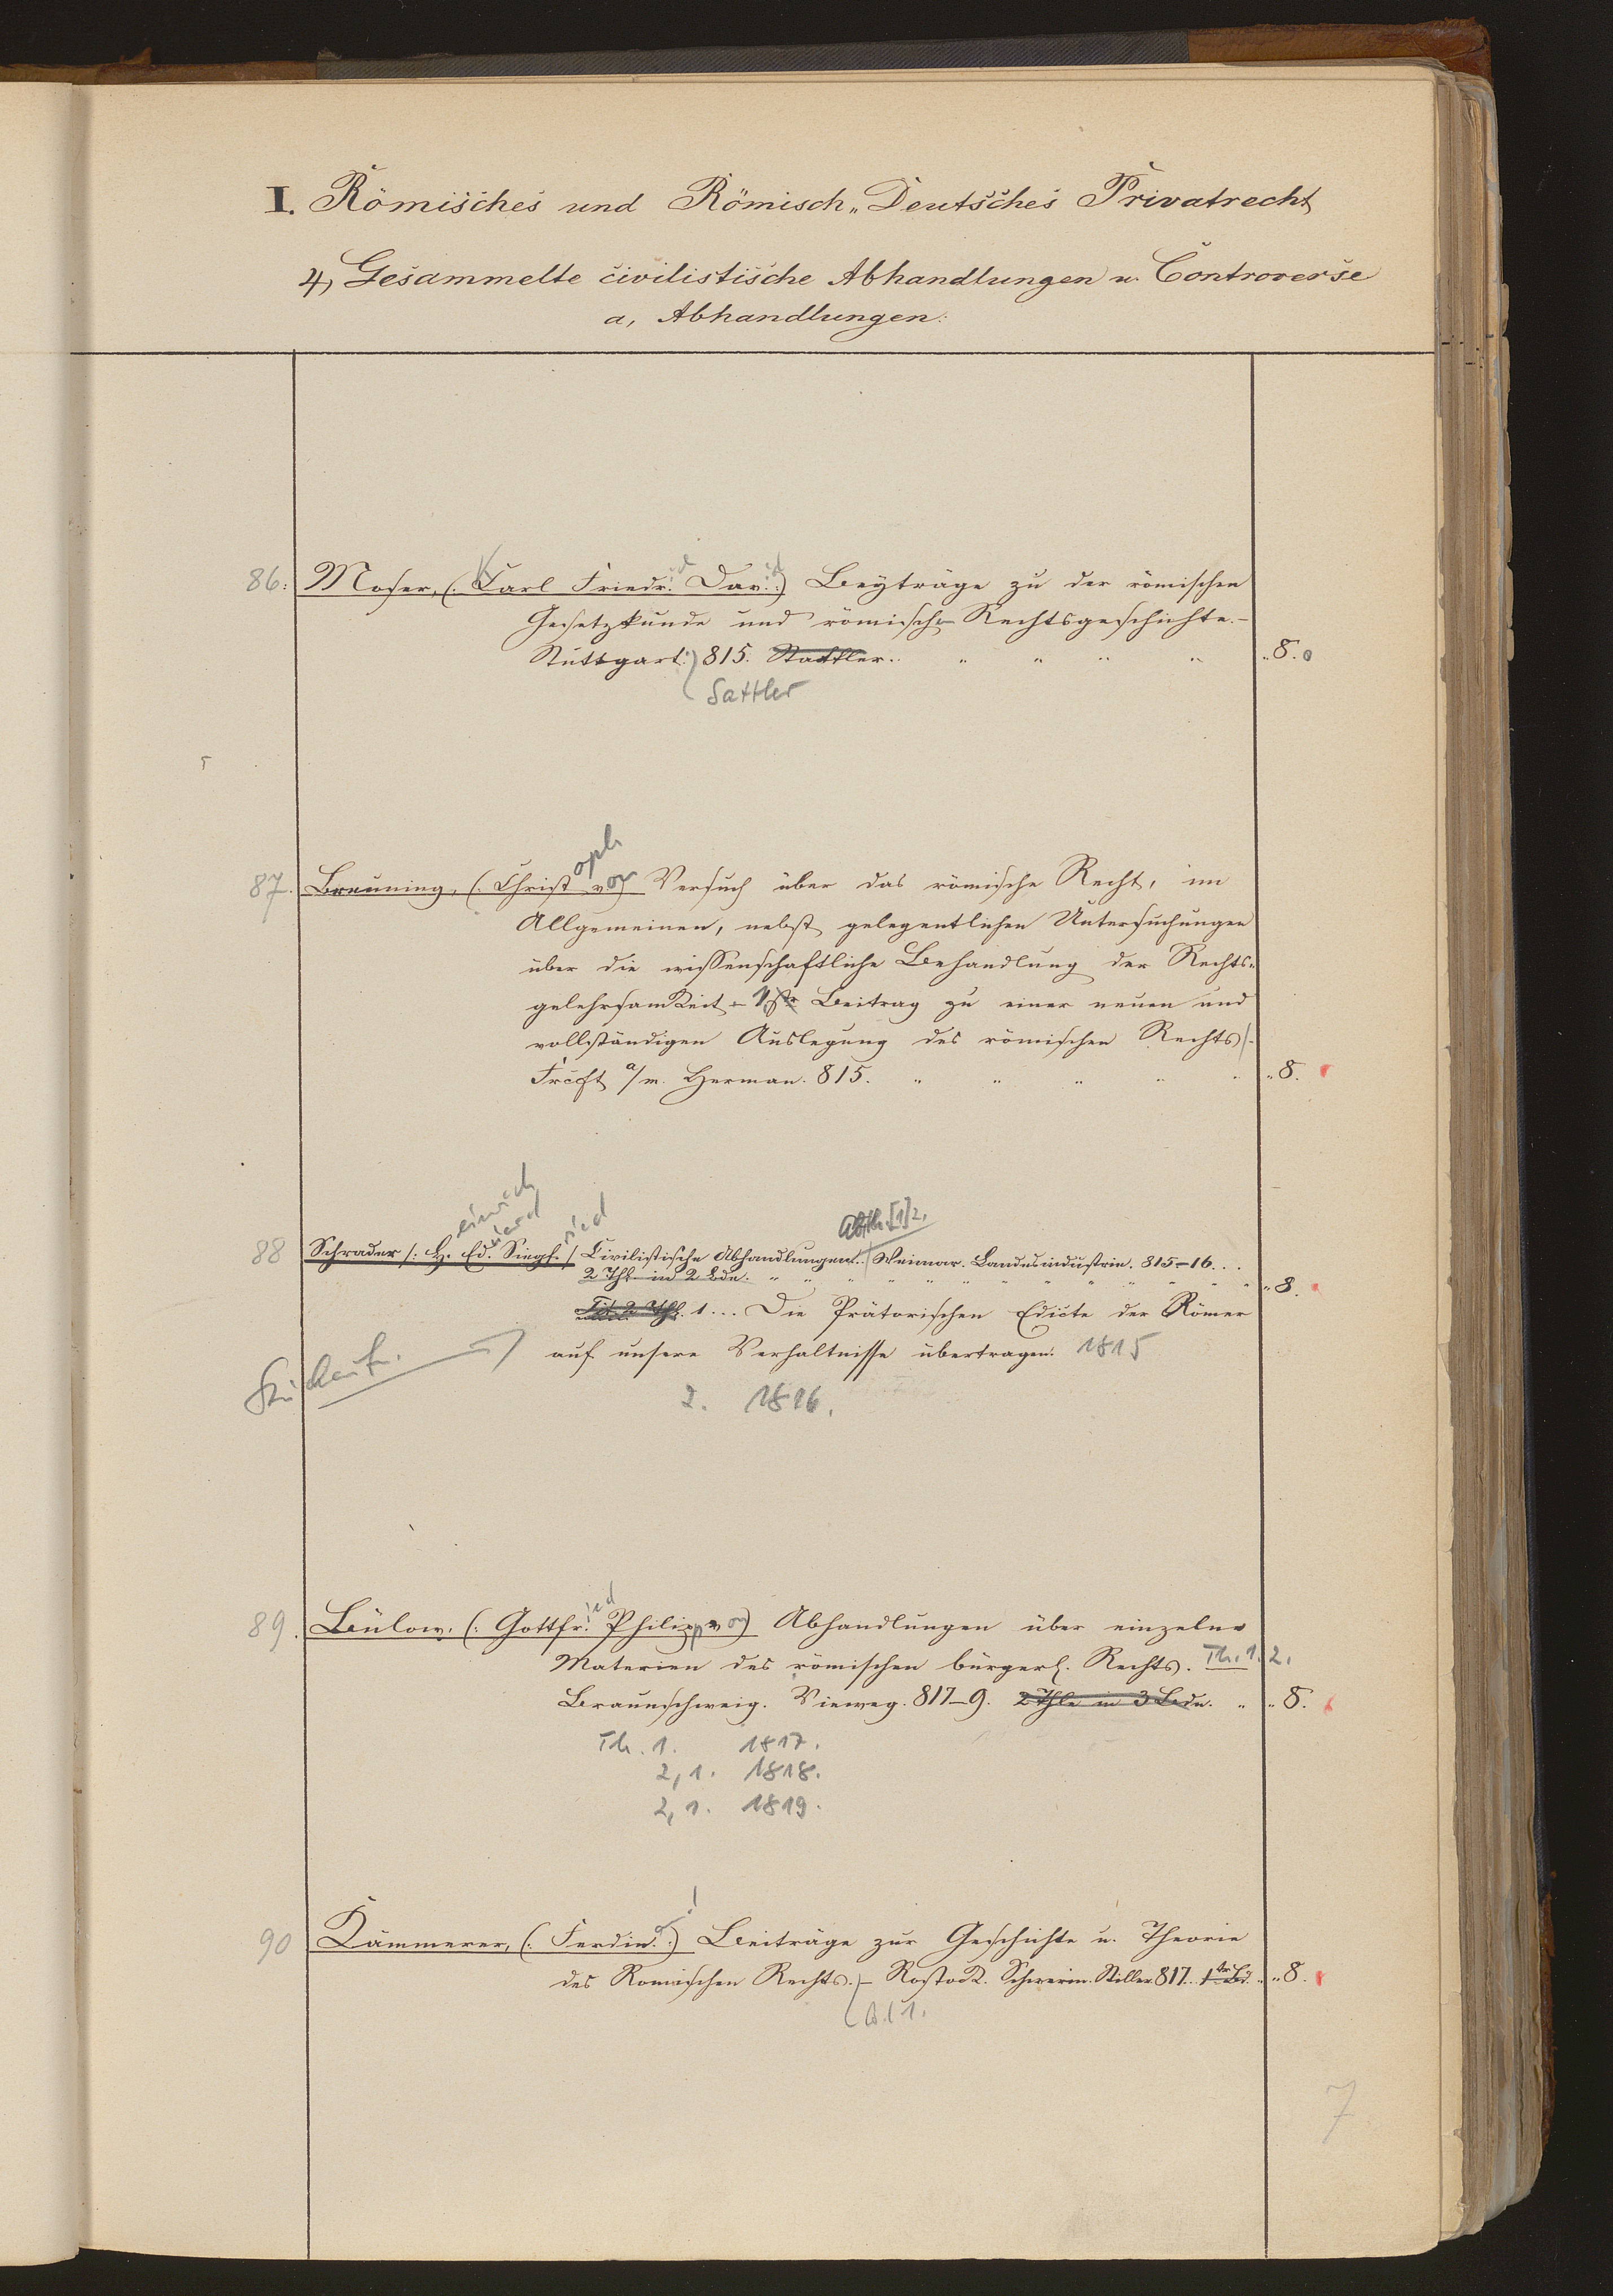 I. Römisches und Römisch„Deutsches Privatrecht
4, Gesammelte civilistische Abhandlungen u. Controverse
a, Abhandlungen.
86. Moser, (. Karl Friedr. Dav. .) Beyträge zu der römischen
Gesetzkunde und römische Rechtsgeschichte. –
Stuttgart. 815. Stattler. „ 8.
Sattler
87. Breuning, (. Christoph von Versuch über das römische Recht, im
Allgemeinen, nebst gelegentlichen Untersuchungen
über die wissenschaftliche Behandlung der Rechts-
gelehrsamkeit – 1ster Beitrag zu einer neuen und
vollständigen Auslegung des römischen Rechts
Frcft a/m. Herman. 815. „ 8.
Abth. [1] 2.
88 Schrader /: Heinrich Eduard Siegfried / Civilistische Abhandlungen. Weimar. Landesindustrie. 815–16...
2 Thl. in 2 Bde. „ 8.
Tit. 2 Thl. 1... Die Prätorischen Edicte der Römer
auf unsere Verhaltnisse übertragen. 1815
2. 1816.
89. Bülow. (. Gottfried Philipp von) Abhandlungen über einzelne
Materien des römischen bürgerl. Rechts. Th. 1. 2.
Braunschweig. Vieweg. 817–9. 2 Thle in 3 Bde. „ 8.
Th. 1. 1817.
2, 1. 1818.
2, 1. 1819.
90 Kämmerer, (. Ferdind. .) Beiträge zur Geschichte u. Theorie
des Romischen Rechts. – Rostock. Schwerin. Stiller 817. 1ter Bd. „ 8.
Bd 1.
7